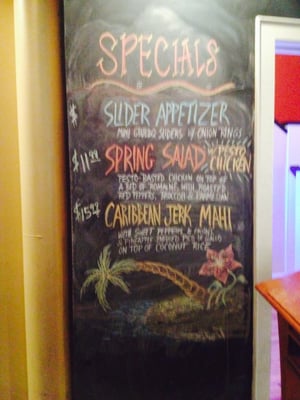 SPECIALS
$ SLIDER APPETIZER
MINI SLIDERS w/ ONION RINGS
$11.99 SPRING SALAD w/ PESTO CHICKEN
PESTO-ROASTED CHICKEN ON TOP OF
A BED OF ROMAINE WITH ROASTED
RED PEPPERS, BROCCOLI &
$15.97 CARIBBEAN JERK MAHI
WITH SWEET PEPPERS & ONION
& PINEAPPLE
ON TOP OF COCONUT RICE